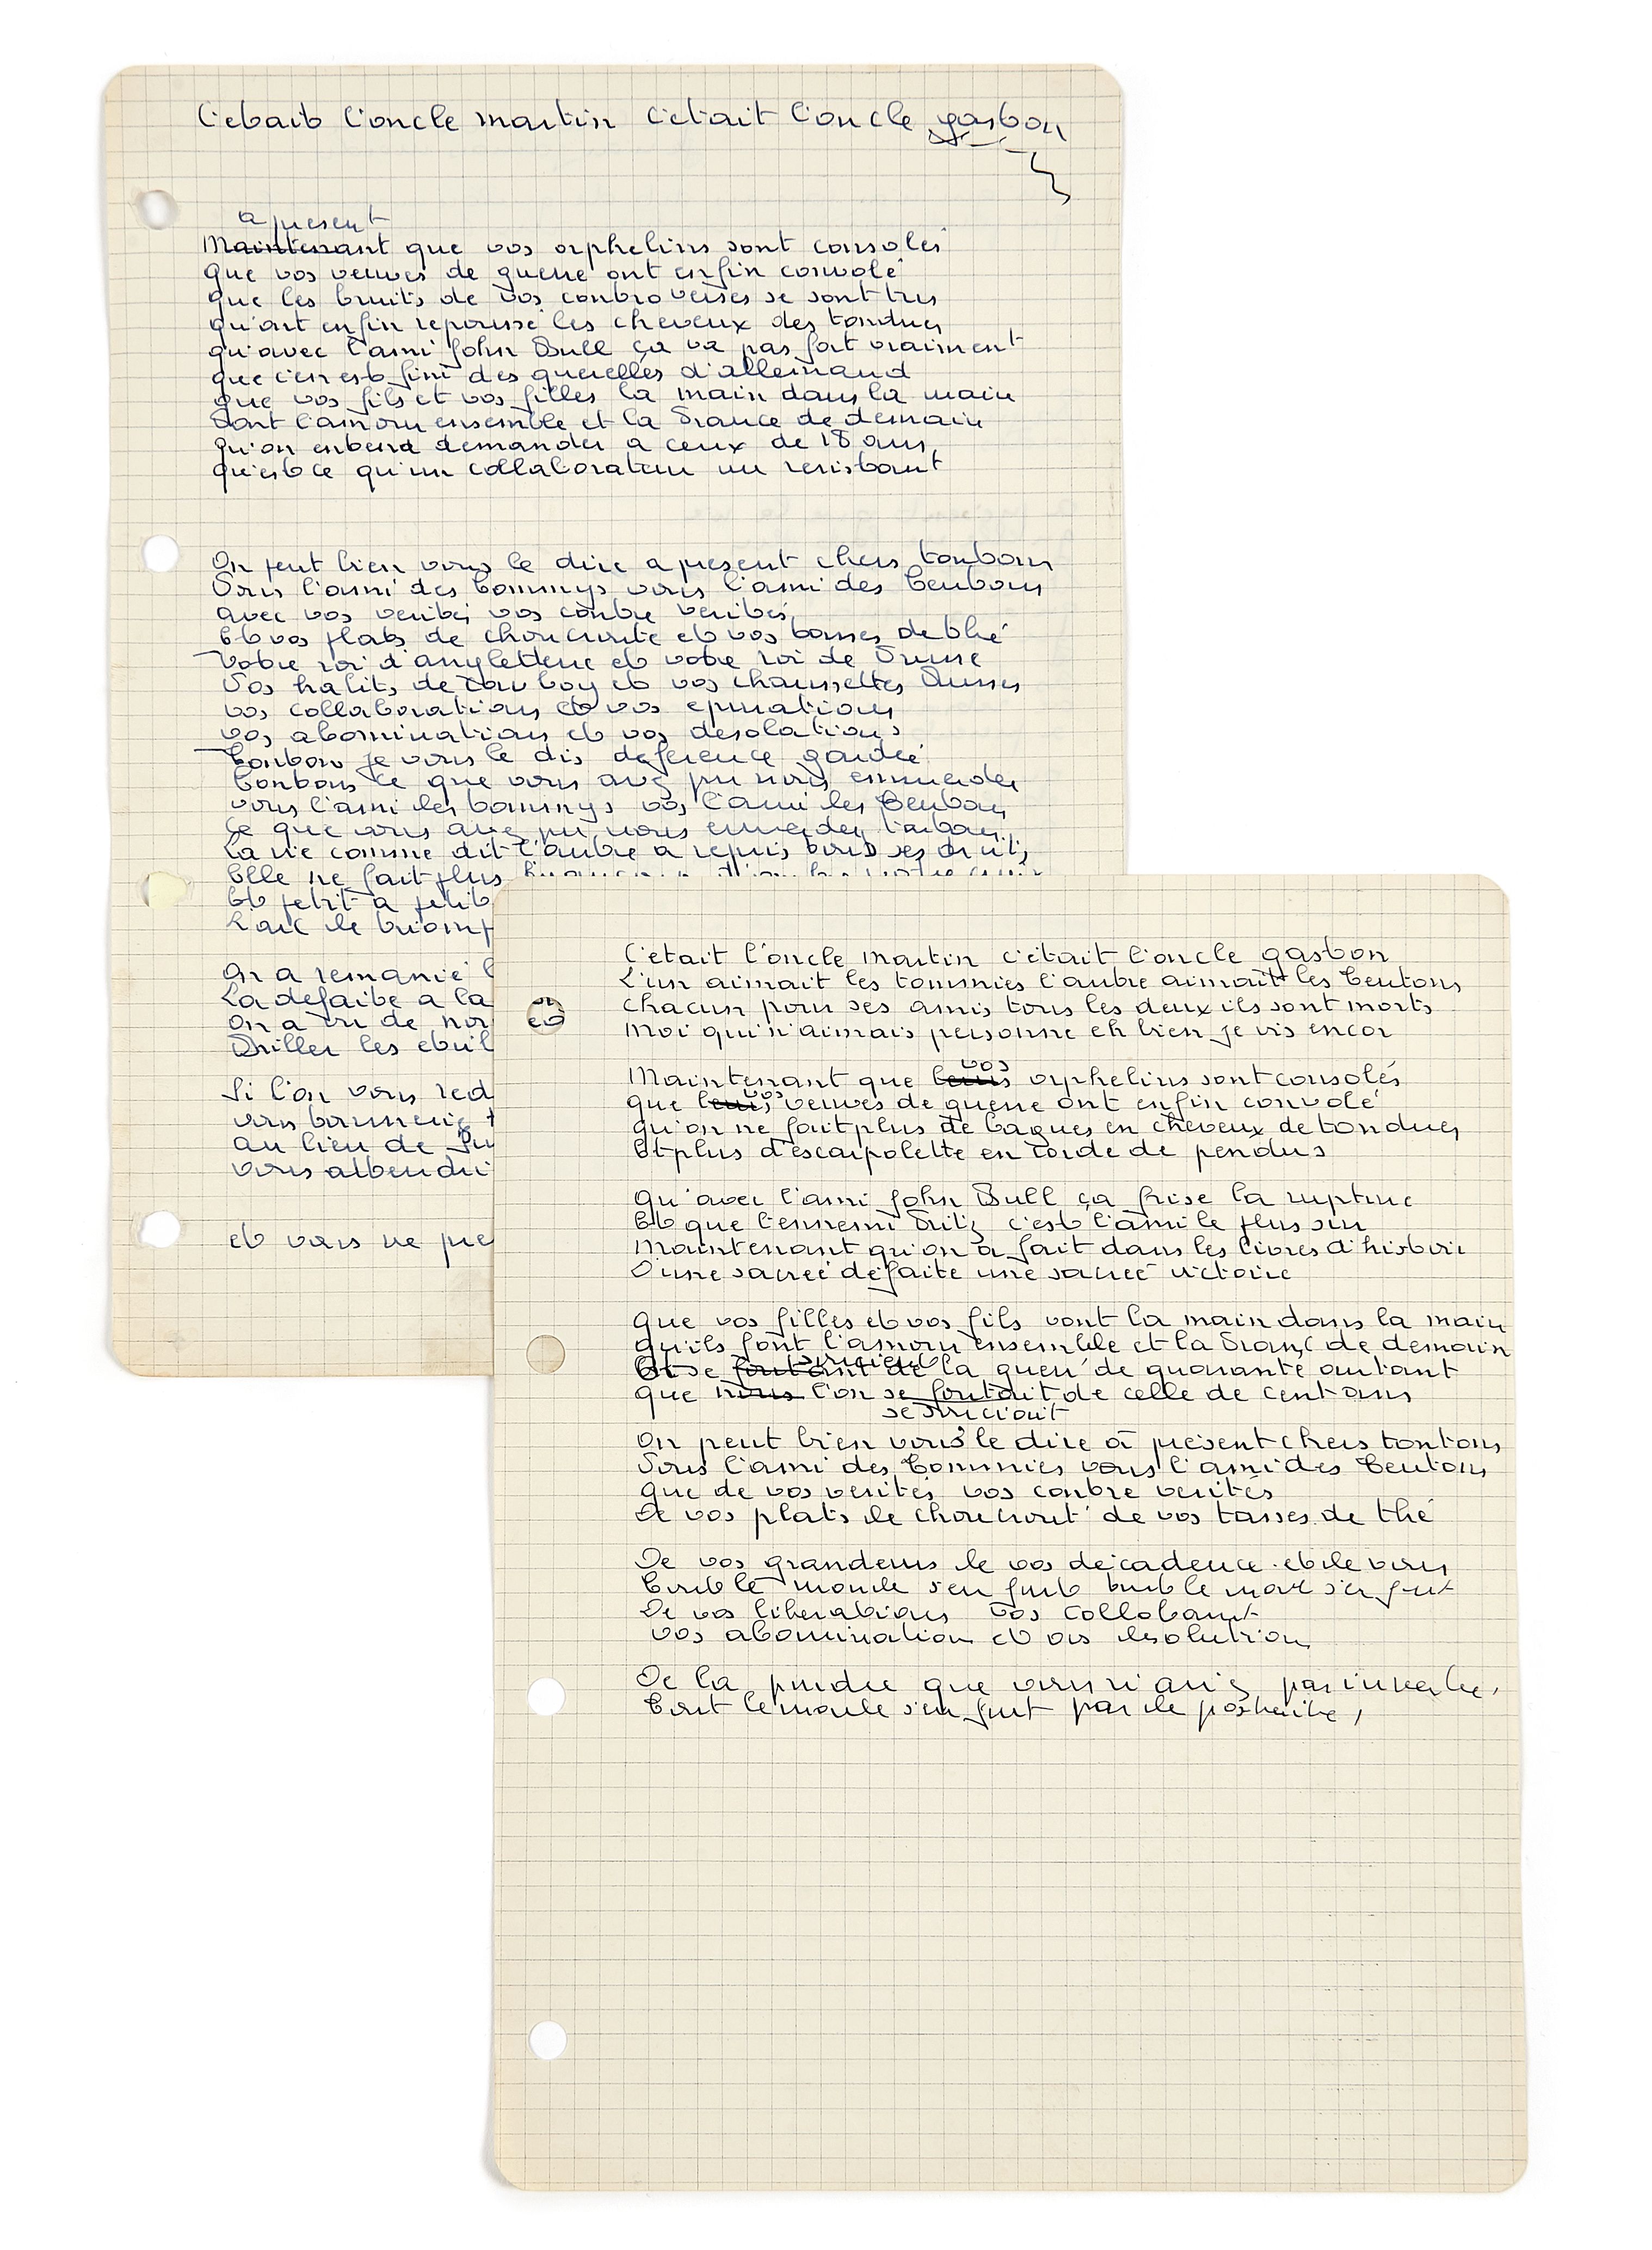 C'etait l'oncle martin c'etait l'oncle gaston
a present
Maintenant que vos orphelins sont consolés
que vos veuves de guerre ont enfin convolé
que les bruits de vos controverses se sont tus
qu'ont enfin repoussé les cheveux des tondues
qu'avec l'ami John Bull ça va pas fort vraiment
que c'en est fini des querelles d'allemand
que vos fils et vos filles la main dans la main
Font l'amour ensemble et la France de demain
qu'on entend demander a ceux de 18 ans
qu'est ce qu'un collaborateur un resistant
On peut bien vous le dire a present chers tontons
Vous l'ami des tommys vous l'ami des teutons
avec vos verités vos contre verités
Et vos plats de choucroute et vos tasses de thé
Votre roi d'angleterre et votre roi de Prusse
Vos habits de cow boy et vos chaussettes Russes
vos collaborations et vos epurations
vos abominations et vos desolations
Tontons je vous le dis deference gardée
Tontons ce que vous avez pu nous emmerder
vous l'ami les tommys vos l'ami les teutons
Ce que vous avez pu nous emmerder tontons
La vie comme dit l'autre a repris tous ses droits
Elle ne fait plus
Et petit a petit
L'arc de triomp
On a remanié l
La defaite a la
On a vu de no
Briller les etoil
Si l'on vous red
vous tourneriez
au lieu de
vous attendri
et vous ne pre
et
C'etait l'oncle martin c'était l'oncle gaston
L'un aimait les tommies l'autre aimait les teutons
Chacun pour ses amis tous les deux ils sont morts
Moi qui n'aimais personne eh bien je vis encor
vos
Maintenant que leurs orphelins sont consolés
vos
que leurs veuves de guerre ont enfin convolé
qu'on ne fait plus de bagues en cheveux de tondues
Et plus d'escarpolette en corde de pendus
Qu'avec l'ami John Bull ça frise la rupture
Et que l'ennemi Fritz c'est l'ami le plus sur
Maintenant qu'on a fait dans les livres d'histoire
D'une sacreé défaite une sacreé victoire
que vos filles et vos fils vont la main dans la main
qu'ils font l'amour ensemble et la Franc' de demain
soucient
Et se foutaient de la guerr' de quarante autant
que nous l'on se foutait de celle de cent ans
se souciait
On peut bien vous le dire à présent chers tontons
Vous l'ami des Tommies vous l'ami des Teutons
que de vos verités vos contre verités
De vos plats de choucrout' de vos tasses de thé
De vos grandeurs de vos décadence et de vous
Tout le monde s'en fout tout le mond s'en fout
De vos liberations vos collobant
vos abomination et vos desolution
De la poudre que vous n'aviez pas inventée,
Tout le monde s'en fout par de postérité,